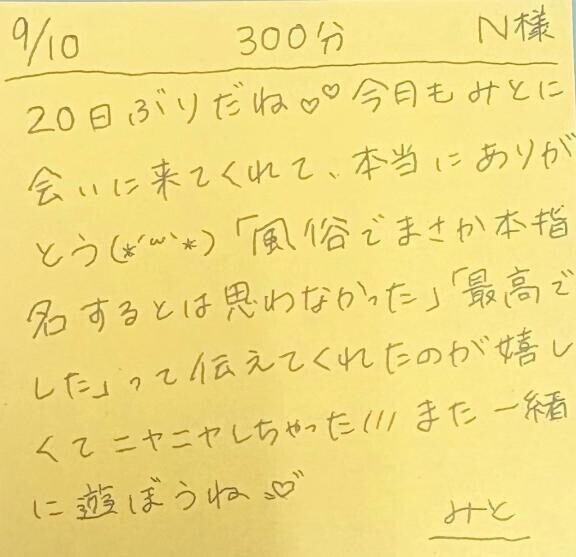 9/10 300分 N様
20日ぶりだね♡♡今日もみとに
会いに来てくれて、本当にありが
とう(*´ω`*)「風俗でまさか本指
名するとは思わなかった」「最高で
した」って伝えてくれたのが嬉し
くてニヤニヤしちゃった///また一緒
に遊ぼうね♡
みと